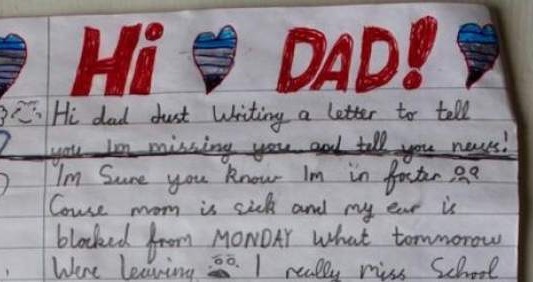 Hi DAD!
Hi dad Just Writing a Letter to tell
you Im missing you and tell you news!
Im Sure you know Im in foster
Couse mom is sick and my ear is
blocked from MONDAY What tommorow
Were leaving I really miss School